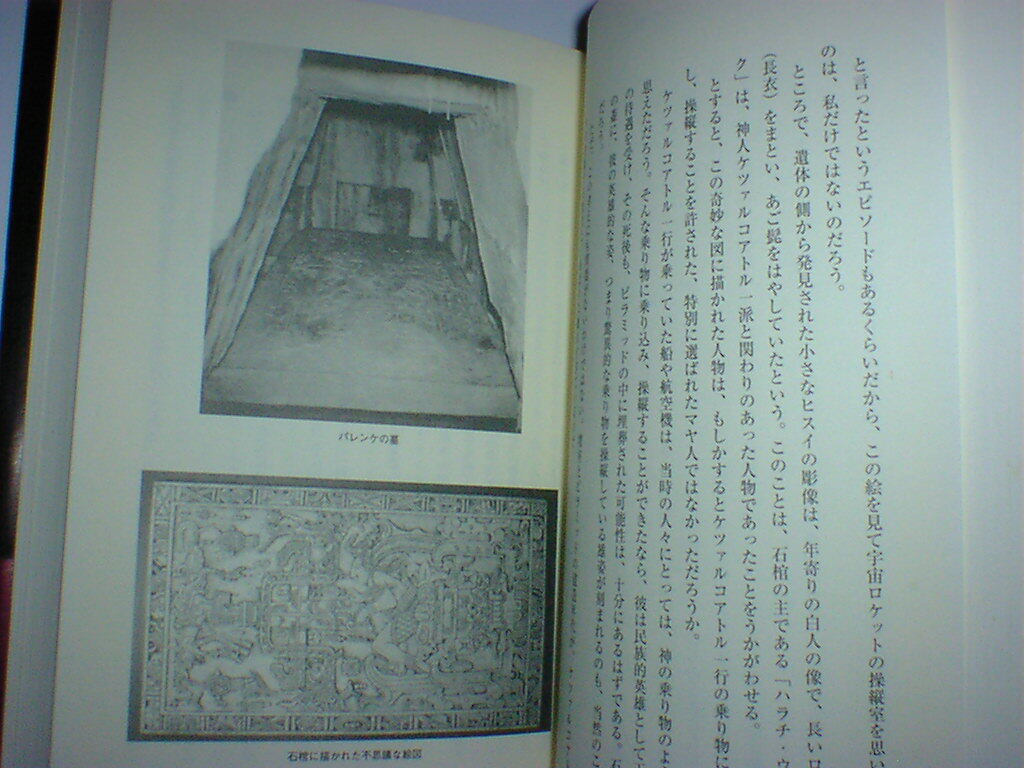 と言ったというエピソードもあるくらいだから、この絵を見て宇宙ロケットの操縦室を思い
のは、私だけではないのだろう。
ところで、遺体の側から発見された小さなヒスイの彫像は、年寄りの白人の像で、長いロ
（長衣）をまとい、あご髭をはやしていたという。このことは、石棺の主である「ハラチ・ウ
ク」は、神人ケツァルコアトル一派と関わりのあった人物であったことをうかがわせる。
とすると、この奇妙な図に描かれた人物は、もしかするとケツァルコアトル一行の乗り物に
し、操縦することを許された、特別に選ばれたマヤ人ではなかっただろうか。
ケツァルコアトル一行が乗っていた船や航空機は、当時の人々にとっては、神の乗り物のよ
思えただろう。そんな乗り物に乗り込み、操縦することができたなら、彼は民族的英雄として
の待遇を受け、その死後も、ピラミッドの中に埋葬された可能性は、十分にあるはずである。石
の蓋に、彼の英雄的な姿、つまり驚異的な乗り物を操縦している雄姿が刻まれるのも、当然のこ
だろう。
パレンケの墓
石棺に描かれた不思議な絵図